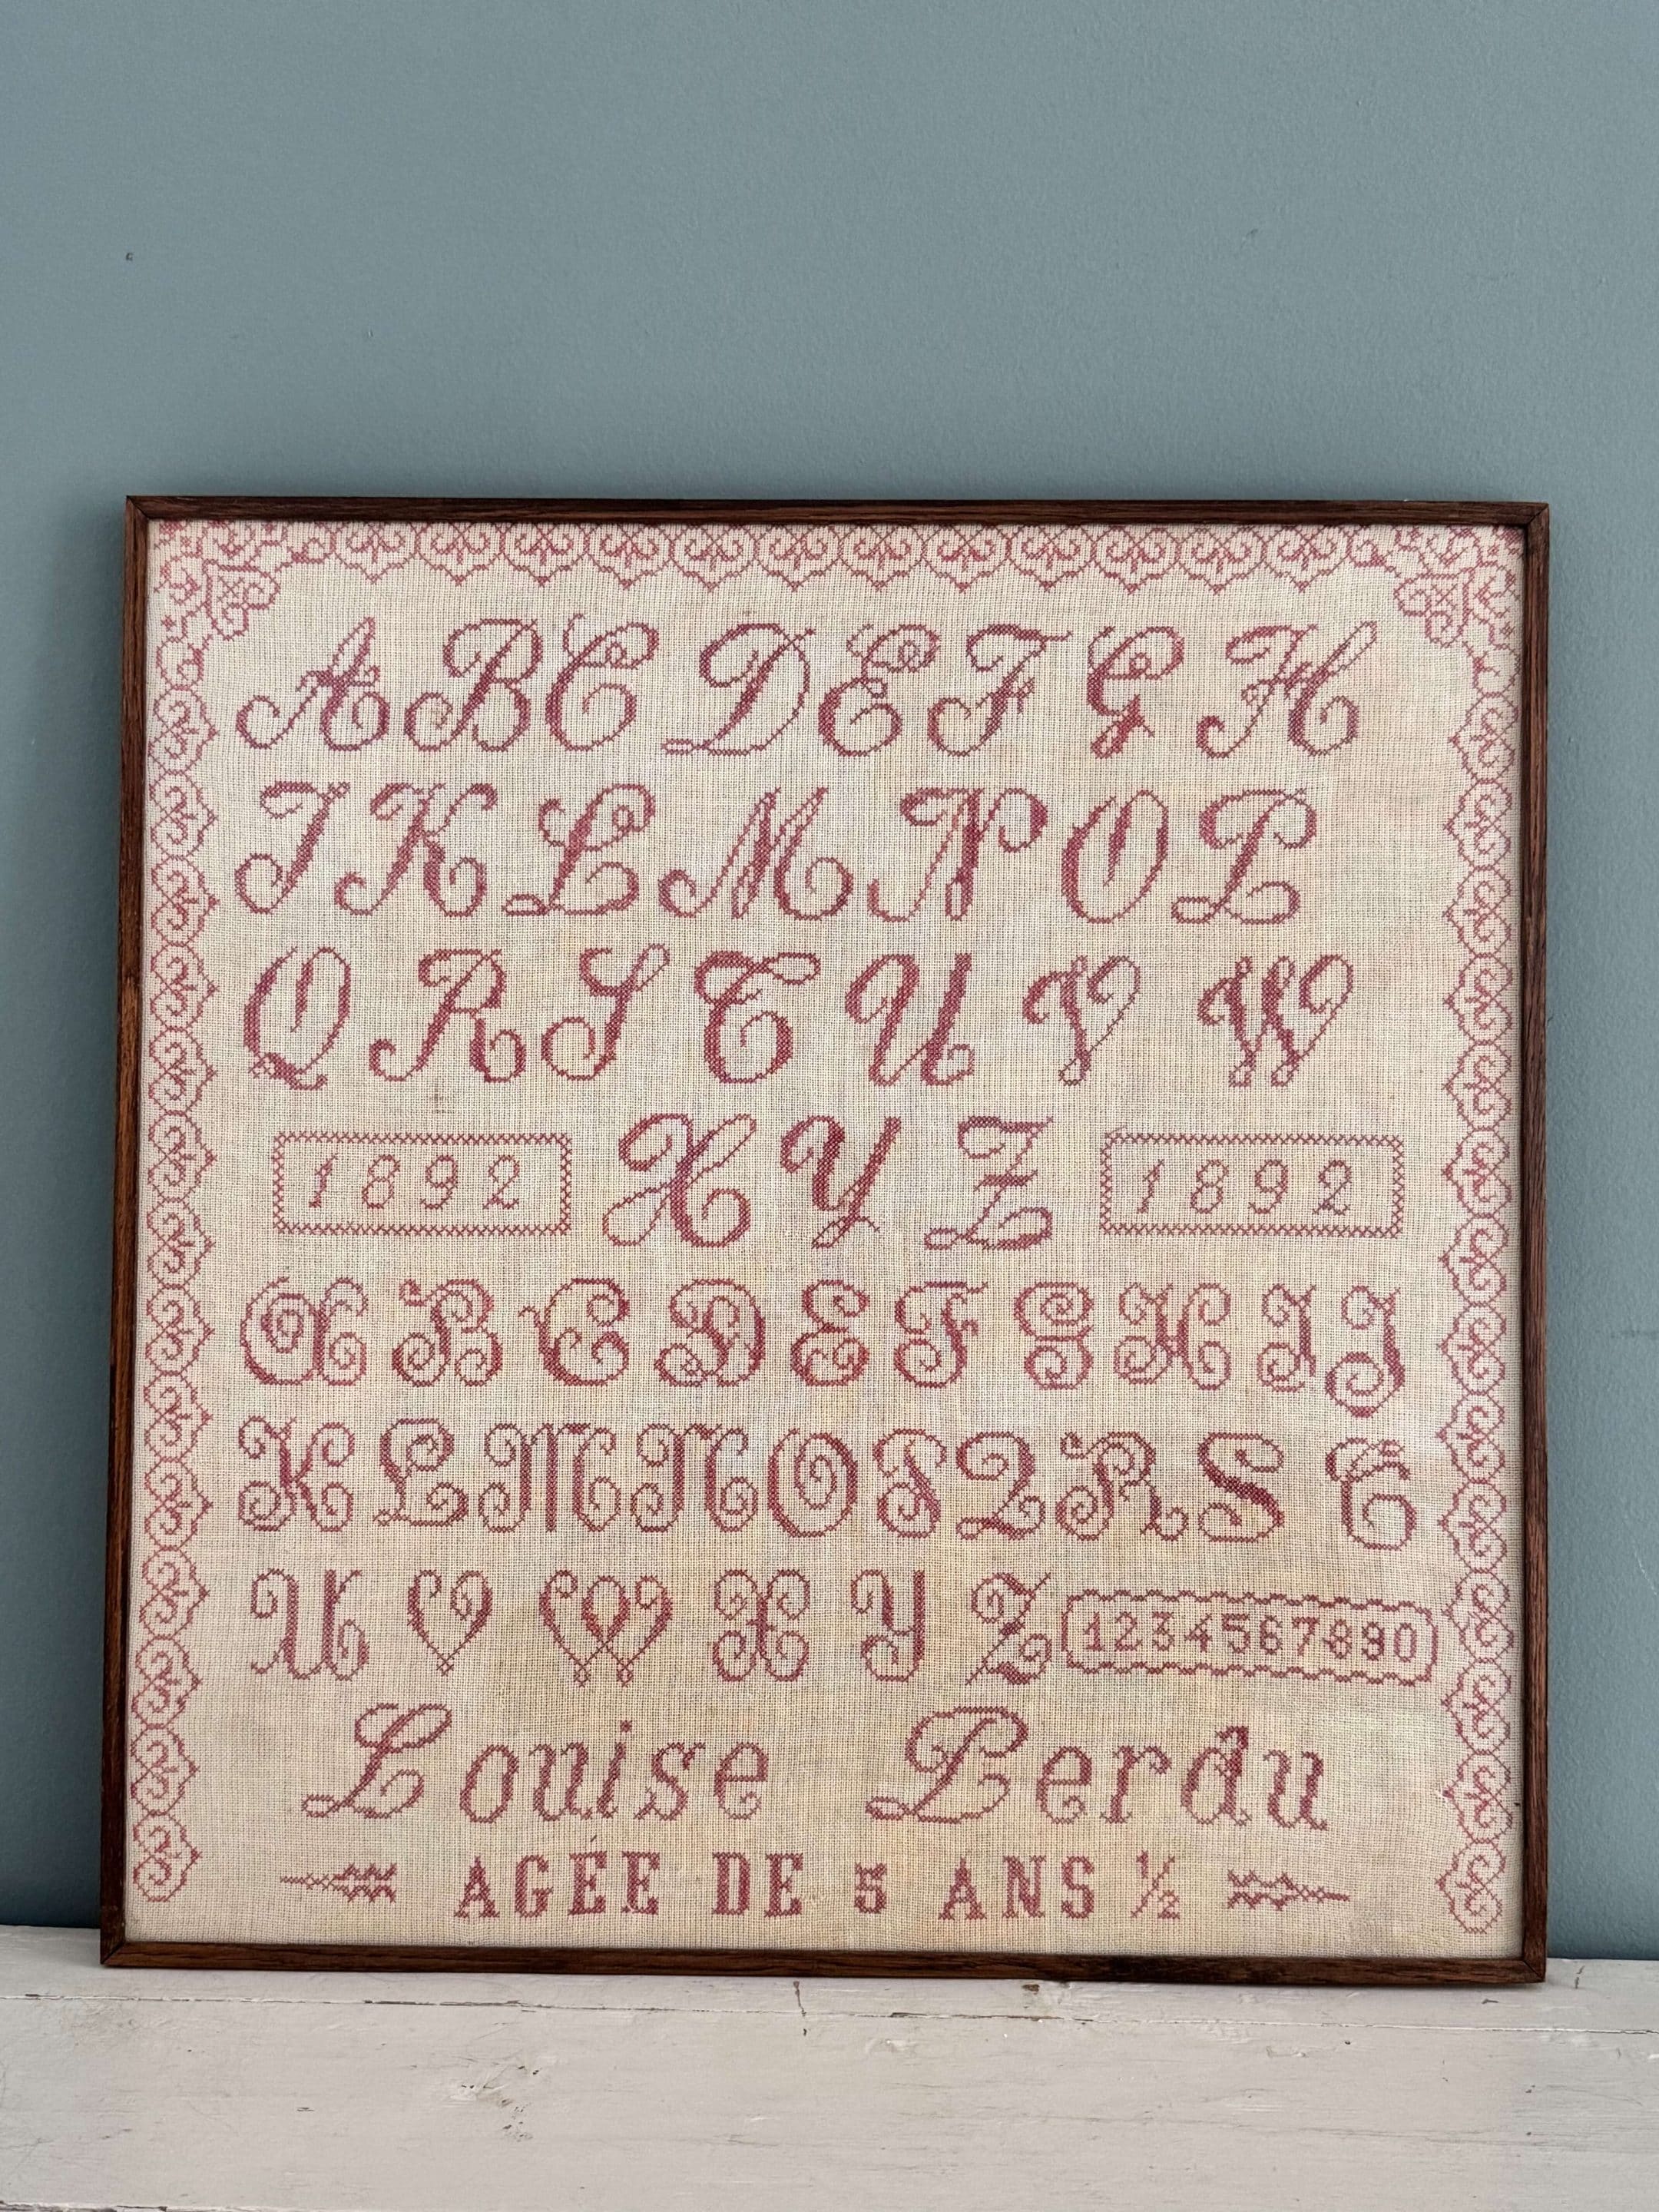 A B C D E F G H
I K L M N O P
Q R S T U V W
1892 X Y Z 1892
A B C D E F G H I J
K L M N O P Q R S T
U V W X Y Z 1234567890
Louise Perdu
AGÉE DE 5 ANS ½